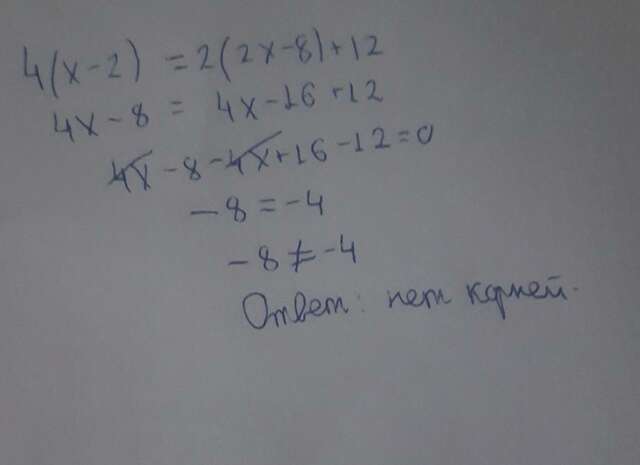 4(x-2) = 2(2x-8)+12
4x-8 = 4x-16+12
4x-8-4x+16-12=0
-8=-4
-8≠-4
Ответ: нет корней.